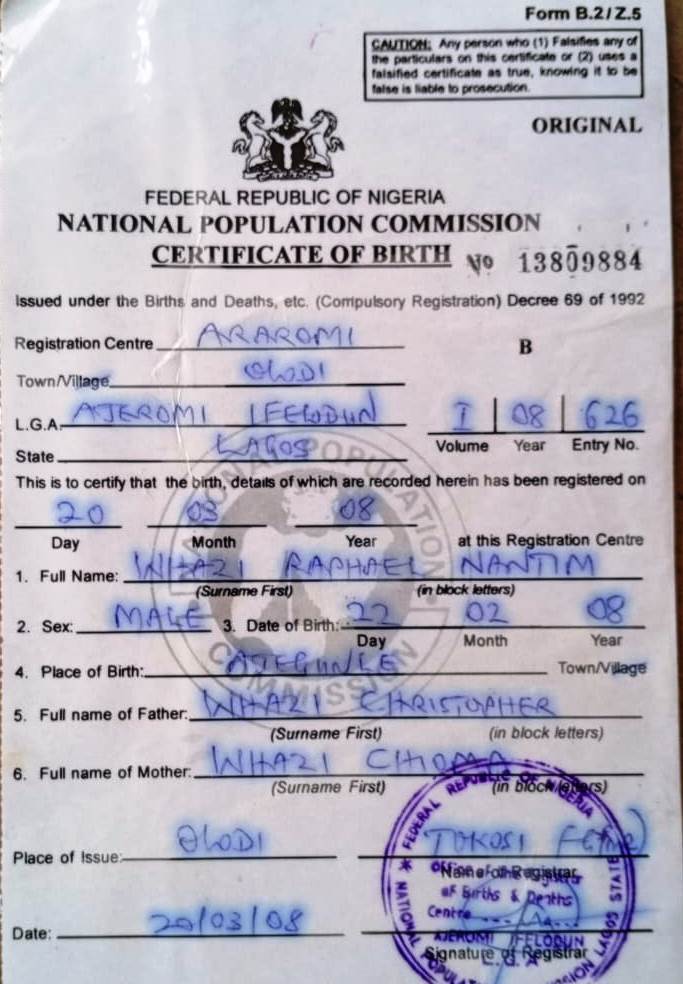 Form B.2/Z.5
CAUTION: Any person who (1) Falsifies any of
the particulars on this certificate or (2) uses a
falsified certificate as true, knowing it to be
false is liable to prosecution.
ORIGINAL
FEDERAL REPUBLIC OF NIGERIA
NATIONAL POPULATION COMMISSION
CERTIFICATE OF BIRTH No 13809884
Issued under the Births and Deaths, etc. (Compulsory Registration) Decree 69 of 1992
Registration Centre ARAROMI B
Town/Village OLODI
L.G.A. AJEROMI IFELODUN I 08 626
Volume Year Entry No.
State LAGOS
This is to certify that the birth, details of which are recorded herein has been registered on
20 03 08
Day Month Year at this Registration Centre
1. Full Name: WHAZI RAPHAEL NANTIM
(Surname First) (in block letters)
2. Sex: MALE 3. Date of Birth: 22 02 08
Day Month Year
4. Place of Birth: AJEGUNLE Town/Village
5. Full name of Father: WHAZI CHRISTOPHER
(Surname First) (in block letters)
6. Full name of Mother: WHAZI CHIOMA
(Surname First) (in block letters)
Place of Issue: OLODI TOKOSI
Name of Registrar
Date: 20/03/08
Signature of Registrar
NATIONAL POPULATION COMMISSION
FEDERAL REPUBLIC OF NIGERIA
NATIONAL POPULATION COMMISSION LAGOS STATE
of Births & Deaths
Centre
AJEROMI IFELODUN
L.G.A